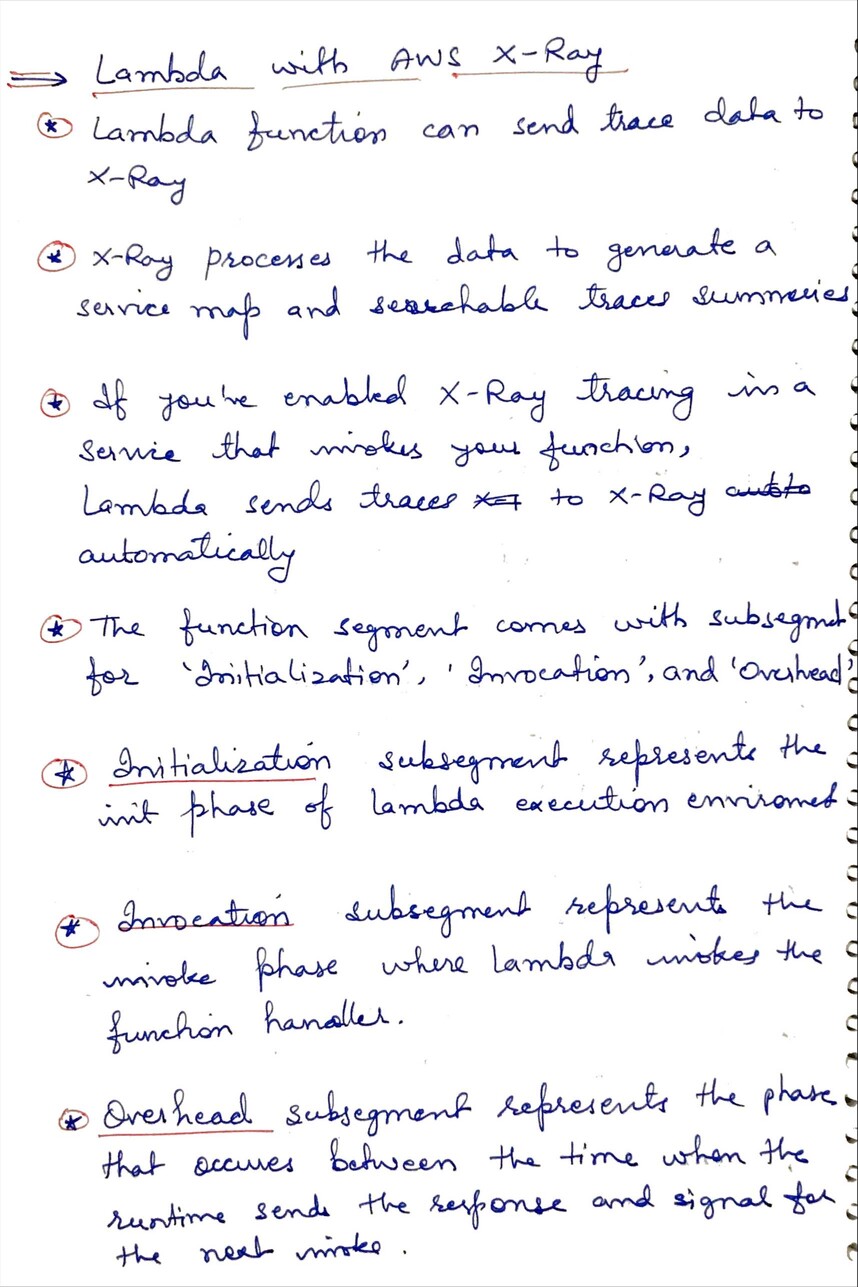 ⇒ Lambda with AWS X-Ray
* Lambda function can send trace data to
X-Ray
* X-Ray processes the data to generate a
service map and searchable traces summeries
* If you've enabled X-Ray tracing in a
service that invokes your function,
Lambda sends traces to X-Ray
automatically
* The function segment comes with subsegmet
for 'Initialization', 'Invocation', and 'Overhead'
* Initialization subsegment represents the
init phase of lambda execution enviromet
* Invocation subsegment represents the
invoke phase where Lambda invokes the
function handler.
* Overhead subsegment represents the phase
that occures between the time when the
runtime sends the response and signal for
the next invoke.